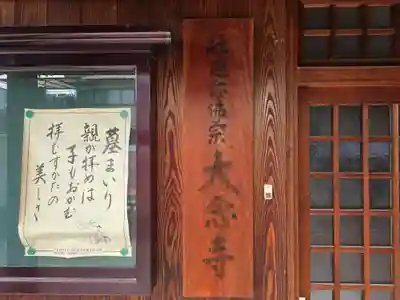 融通念佛宗 大念寺
墓まいり
親が拝めば
子もおがむ
拝むすがたの
美しさ